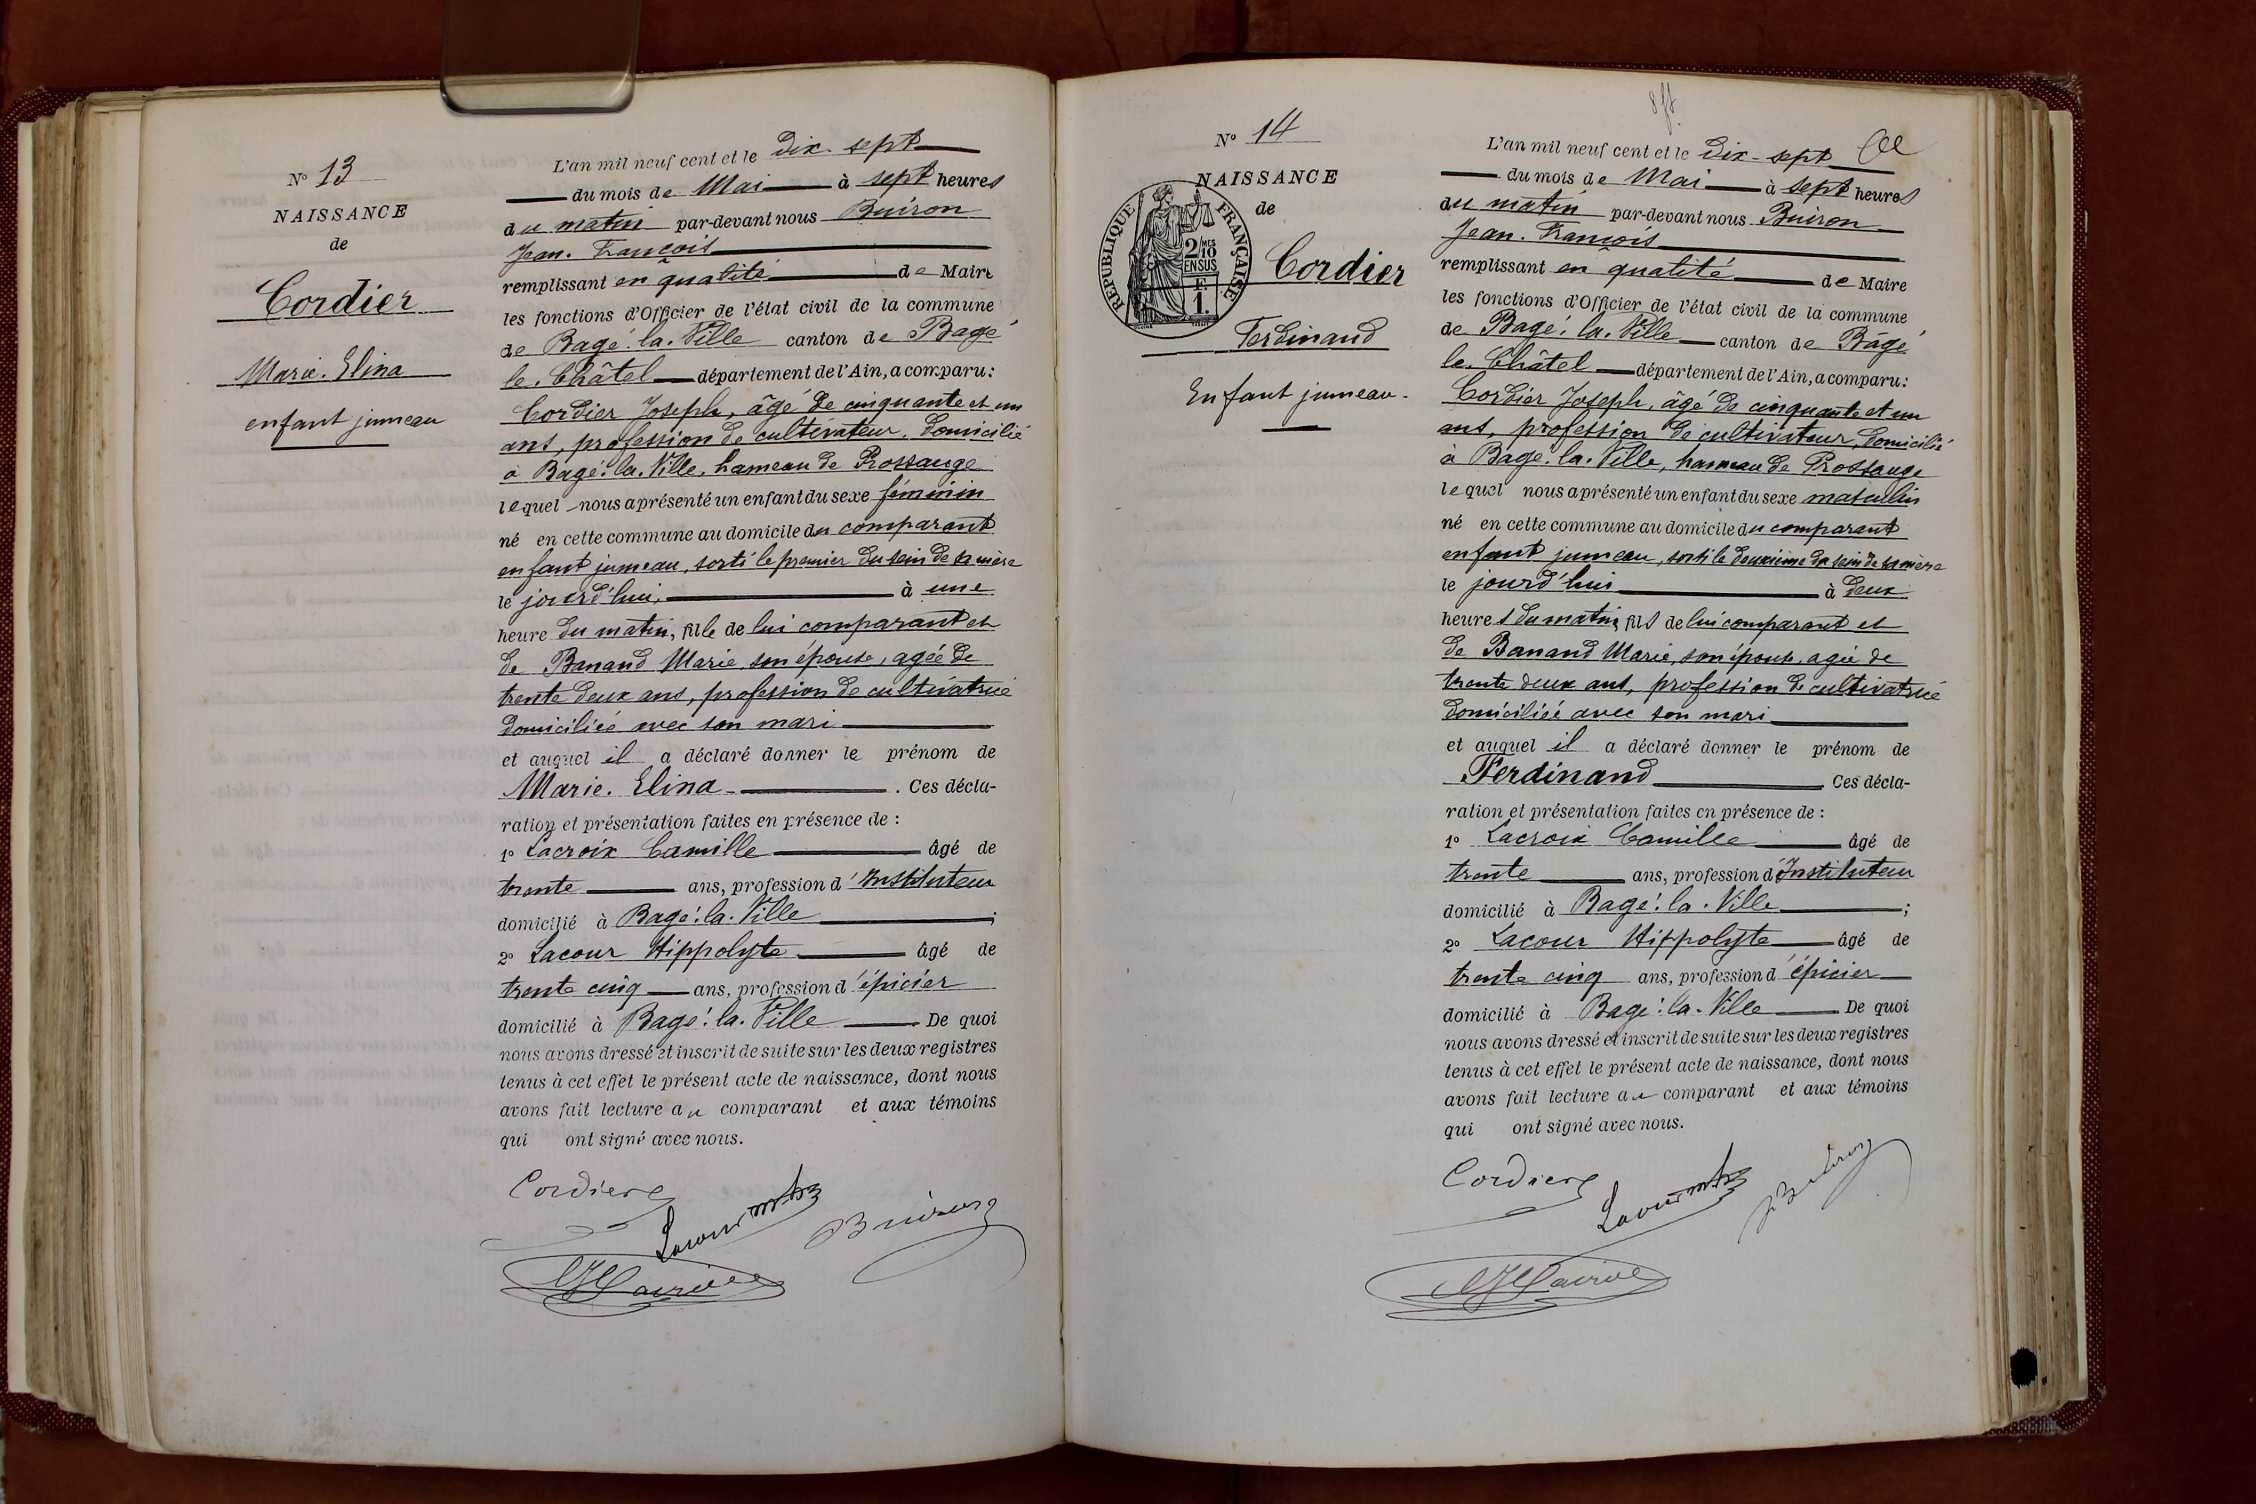 N° 13
NAISSANCE
de
Cordier
Marie. Elina
enfant jumeau
L'an mil neuf cent et le Dix-sept
du mois de Mai à sept heures
du matin par-devant nous Buiron
Jean. François
remplissant en qualité de Maire
les fonctions d'Officier de l'état civil de la commune
de Bagé. la. Ville canton de Bagé
le. Châtel département de l'Ain, a comparu:
Cordier Joseph, âgé de cinquante et un
ans, profession de cultivateur, domicilié
à Bagé. la. Ville, hameau de Prossange
lequel nous a présenté un enfant du sexe féminin
né en cette commune au domicile du comparant
enfant jumeau, sorti le premier du sein de sa mère
le jourd'hui, à une
heure du matin, fille de lui comparant et
de Banand Marie, son épouse, agée de
trente deux ans, profession de cultivatrice
domiciliée avec son mari
et auquel il a déclaré donner le prénom de
Marie. Elina. Ces décla-
ration et présentation faites en présence de :
1° Lacroix Camille âgé de
trente ans, profession d'Instituteur
domicilié à Bagé. la. Ville ;
2° Lacour Hippolyte âgé de
trente cinq ans, profession d'épicier
domicilié à Bagé. la. Ville De quoi
nous avons dressé et inscrit de suite sur les deux registres
tenus à cet effet le présent acte de naissance, dont nous
avons fait lecture au comparant et aux témoins
qui ont signé avec nous.
Cordier
Lacour
Buiron
Lacroix
N° 14
NAISSANCE
de
RÉPUBLIQUE FRANÇAISE
2/10 MES
EN SUS
F.
1.
Cordier
Ferdinand
Enfant jumeau.
L'an mil neuf cent et le Dix-sept
du mois de Mai à sept heures
du matin par-devant nous Buiron
Jean. François
remplissant en qualité de Maire
les fonctions d'Officier de l'état civil de la commune
de Bagé. la. Ville canton de Bâgé
le. Châtel département de l'Ain, a comparu:
Cordier Joseph, âgé de cinquante et un
ans, profession de cultivateur, domicilié
à Bagé. la. Ville, hameau de Prossange
lequel nous a présenté un enfant du sexe masculin
né en cette commune au domicile du comparant
enfant jumeau, sorti le deuxième du sein de sa mère
le jourd'hui à deux
heures du matin, fils de lui comparant et
de Banand Marie, son épouse, agée de
trente deux ans, profession de cultivatrice
domiciliée avec son mari
et auquel il a déclaré donner le prénom de
Ferdinand Ces décla-
ration et présentation faites en présence de :
1° Lacroix Camille âgé de
trente ans, profession d'Instituteur
domicilié à Bagé. la. Ville ;
2° Lacour Hippolyte âgé de
trente cinq ans, profession d'épicier
domicilié à Bagé. la. Ville De quoi
nous avons dressé et inscrit de suite sur les deux registres
tenus à cet effet le présent acte de naissance, dont nous
avons fait lecture au comparant et aux témoins
qui ont signé avec nous.
Cordier
Lacour
Buiron
Lacroix